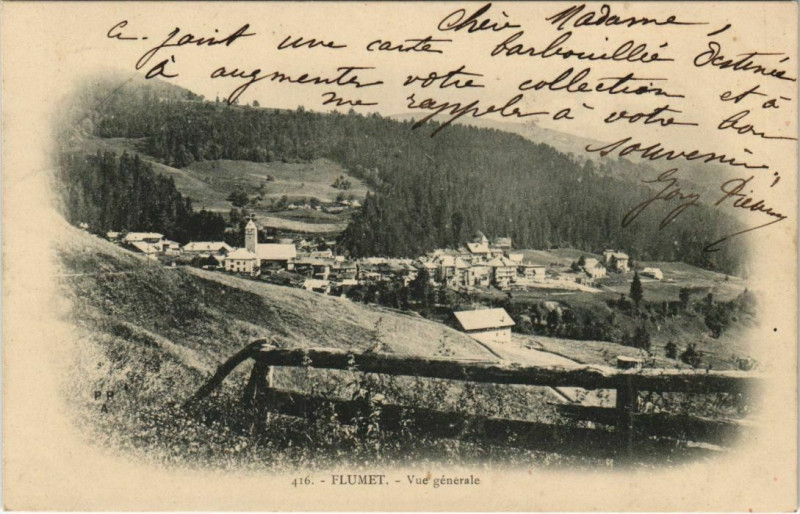 Chère Madame,
Ci-joint une carte barbouillée destinée
à augmenter votre collection et à
me rappeler à votre bon
souvenir,
P P
A
416. - FLUMET. - Vue générale